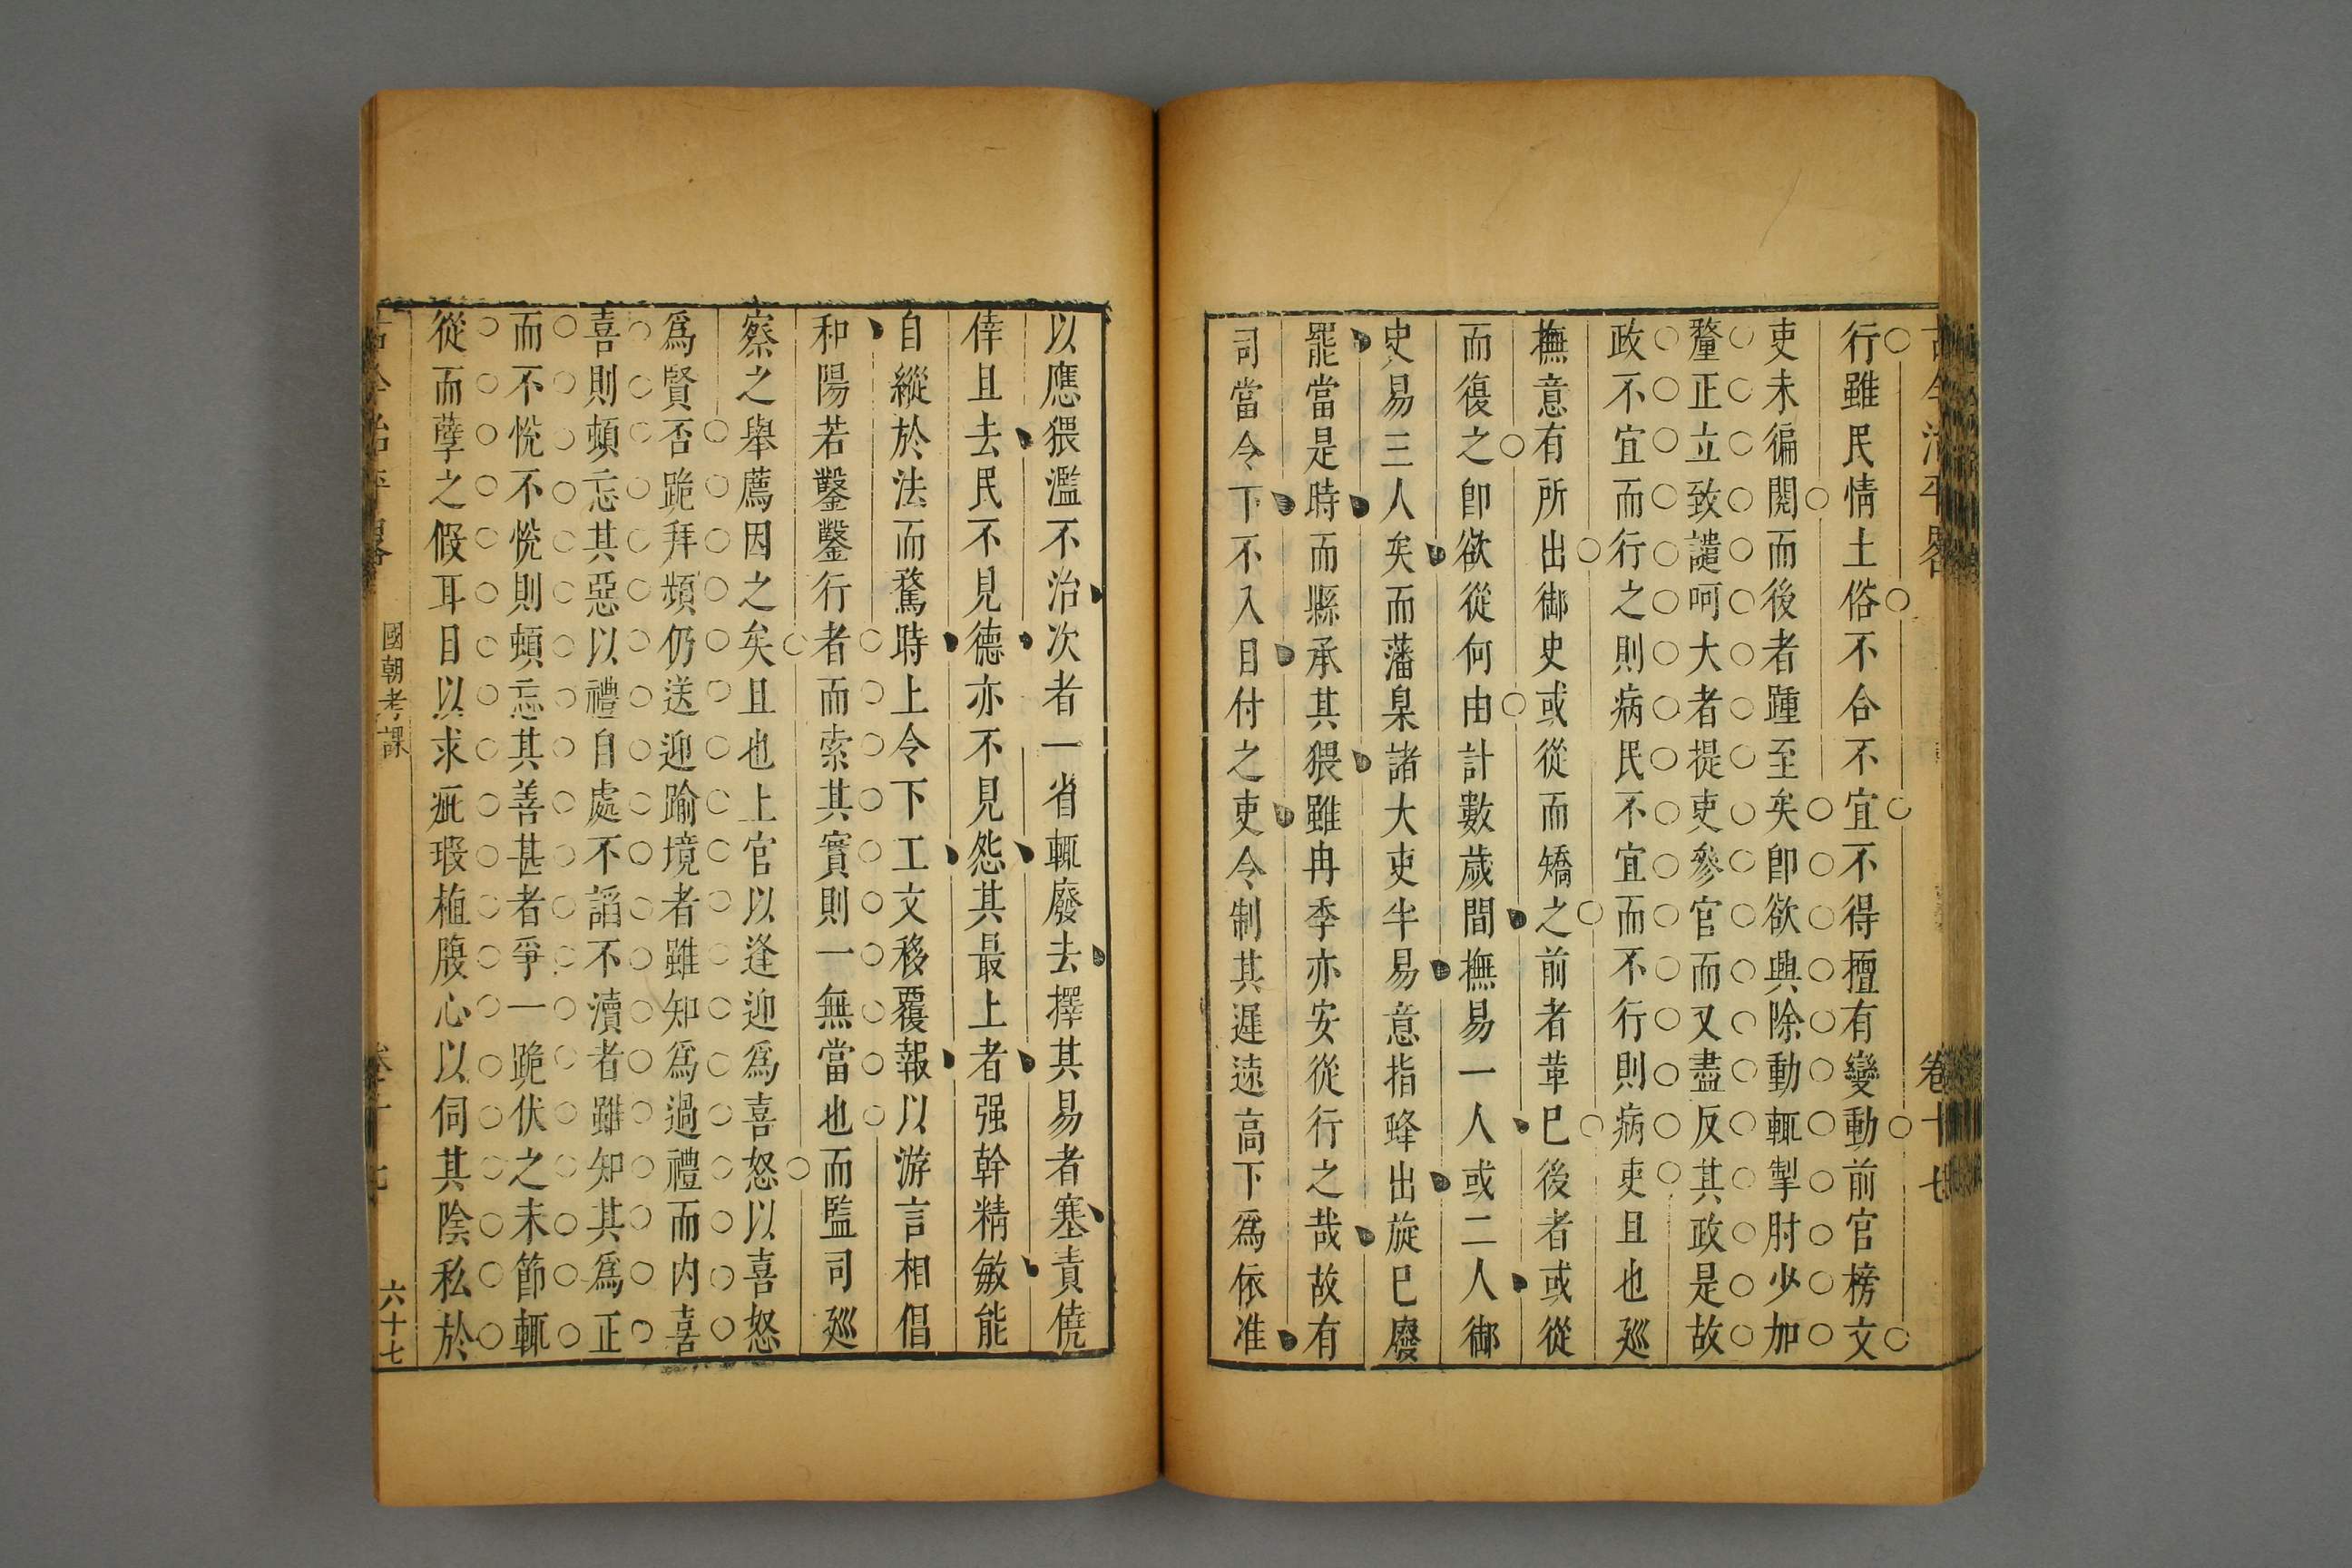 古今治平畧 卷十七
行雖民情土俗不合不宜不得擅有變動前官榜文
吏未徧閱而後者踵至矣卽欲興除動輒掣肘少加
釐正立致譴呵大者提吏參官而又盡反其政是故
政不宜而行之則病民不宜而不行則病吏且也廵
撫意有所出御史或從而矯之前者革巳後者或從
而復之卽欲從何由計數歲間撫易一人或二人御
史易三人矣而藩臬諸大吏半易意指蜂出旋巳廢
罷當是時而縣承其猥雖冉季亦安從行之哉故有
司當令下不入目付之吏令制其遲速高下爲依准
以應猥濫不治次者一省輒廢去擇其易者塞責僥
倖且去民不見德亦不見怨其最上者强幹精敏能
自縱於法而騖時上令下工文移覆報以游言相倡
和陽若鑿鑿行者而索其實則一無當也而監司廵
察之舉薦因之矣且也上官以逢迎爲喜怒以喜怒
爲賢否跪拜頻仍送迎踰境者雖知爲過禮而内喜
喜則頓忘其惡以禮自處不謟不瀆者雖知其爲正
而不悅不悅則頓忘其善甚者爭一跪伏之末節輒
從而孽之假耳目以求疵瑕植腹心以伺其陰私於
古今治平畧 國朝考課 卷十七 六十七